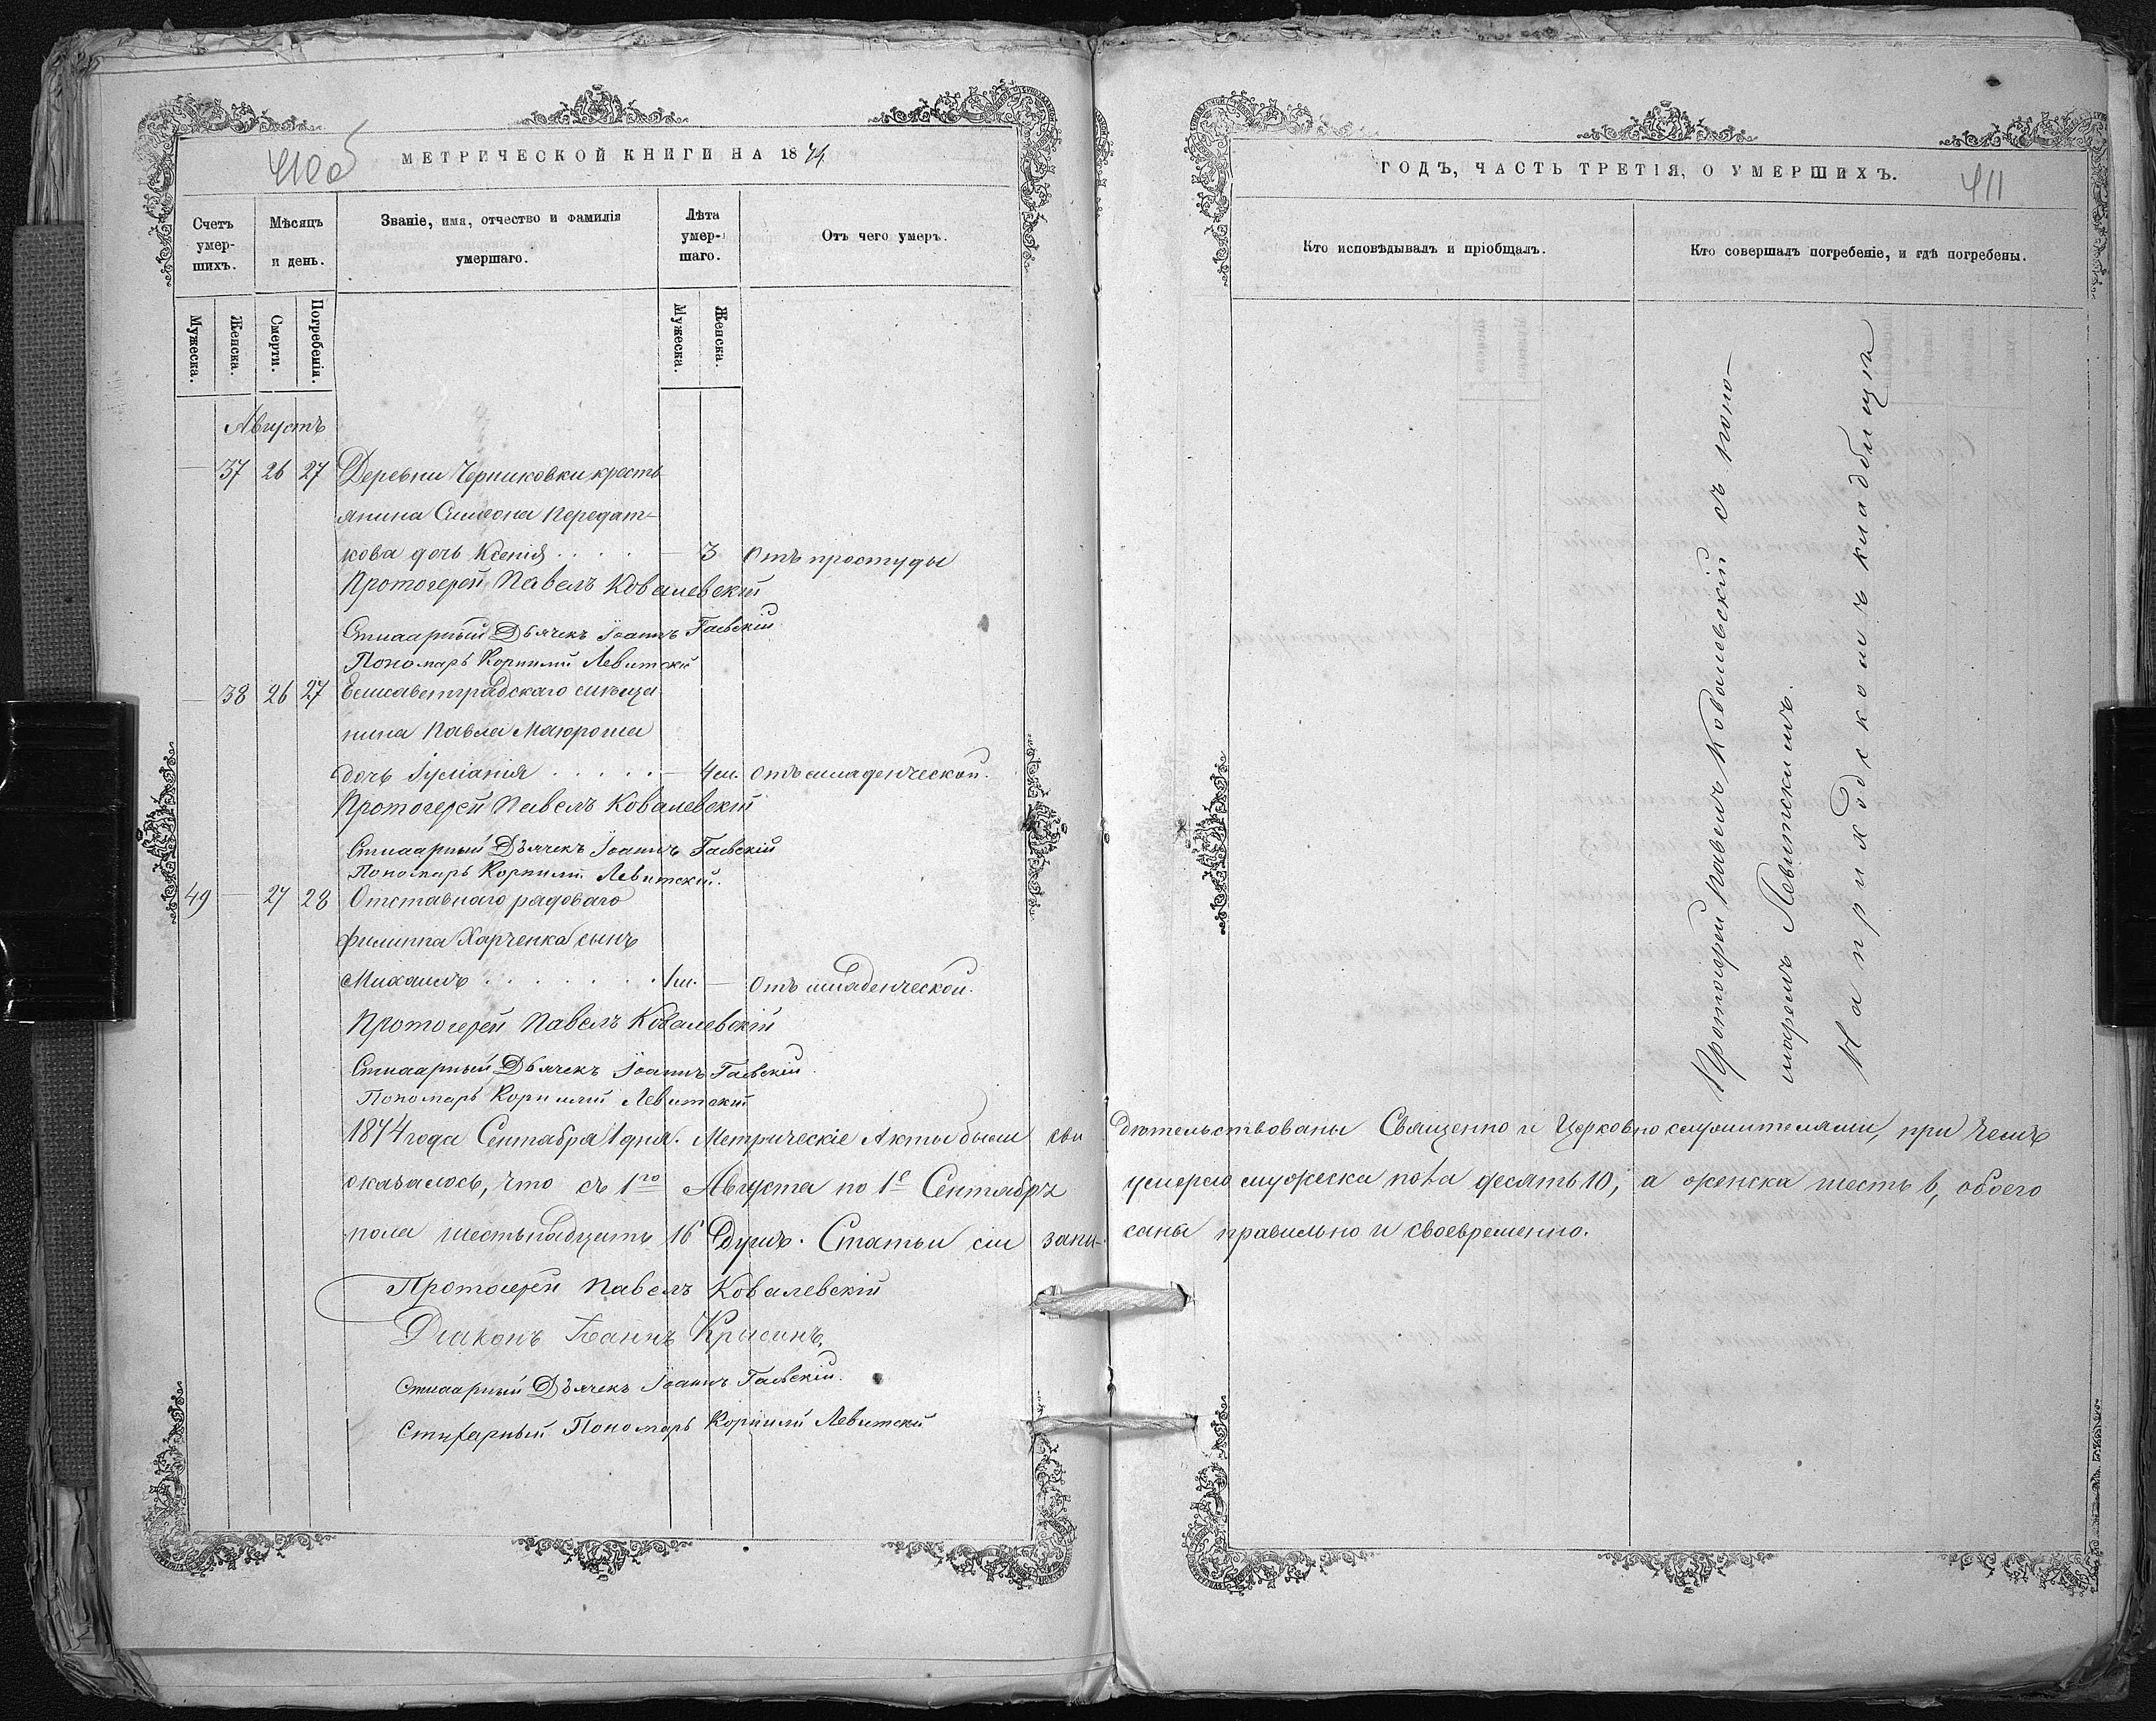 410об
МЕТРИЧЕСКОЙ КНИГИ НА 1874
Счетъ умер-шихъ.
Мѣсяцъ и день.
Званіе, имя, отчество и фамилія умершаго.
Лѣта умер-шаго.
Отъ чего умеръ.
Мужеска.
Женска.
Смерти.
Погребенія.
Мужеска.
Женска.
Августъ
— 37 26 27 Деревни Черниковки кресть
янина Симеона Передат-
кова дочь Ксенія . . . . — 3 Отъ простуды
Протоіерей Павелъ Ковалевскій
Стихарный Дьячекъ Іоаннъ Гаевскій
Пономарь Корнилій Левитскій
— 38 26 27 Елисаветградскаго мѣща
нина Павла
дочь Іуліанія . . . . . — 4м. Отъ младенческой.
Протоіерей Павелъ Ковалевскій
Стихарный Дьячекъ Іоаннъ Гаевскій
Пономарь Корнилій Левитскій.
49 — 27 28 Отставнаго рядоваго
Филиппа Харченка сынъ
Михаилъ . . . . . . . 1м. — Отъ младенческой.
Протоіерей Павелъ Ковалевскій
Стихарный Дьячекъ Іоаннъ Гаевскій.
Пономарь Корнилій Левитскій
1874 года Сентября 1 дня. Метрическіе Акты были сви
оказалось, что съ 1го Августа по 1е Сентября
пола шестьнадцать 16 Душъ. Статьи сіи запи-
Протоіерей Павелъ Ковалевскій
Діаконъ Іоаннъ
Стихарный Дьячекъ Іоаннъ Гаевскій.
Стихарный Пономарь Корнилій Левитскій
ГОДЪ, ЧАСТЬ ТРЕТІЯ, О УМЕРШИХЪ.
411
Кто исповѣдывалъ и пріобщалъ.
Кто совершалъ погребеніе, и гдѣ погребены.
Протоіерей Павелъ Ковалевскій съ поно-
маремъ Левитскимъ.
На приходскомъ кладбищѣ
дѣтельствованы Священно и Церковно служителями, при чемъ
умерло мужеска пола десять 10, а женска шесть 6, обоего
саны правильно и своевременно.